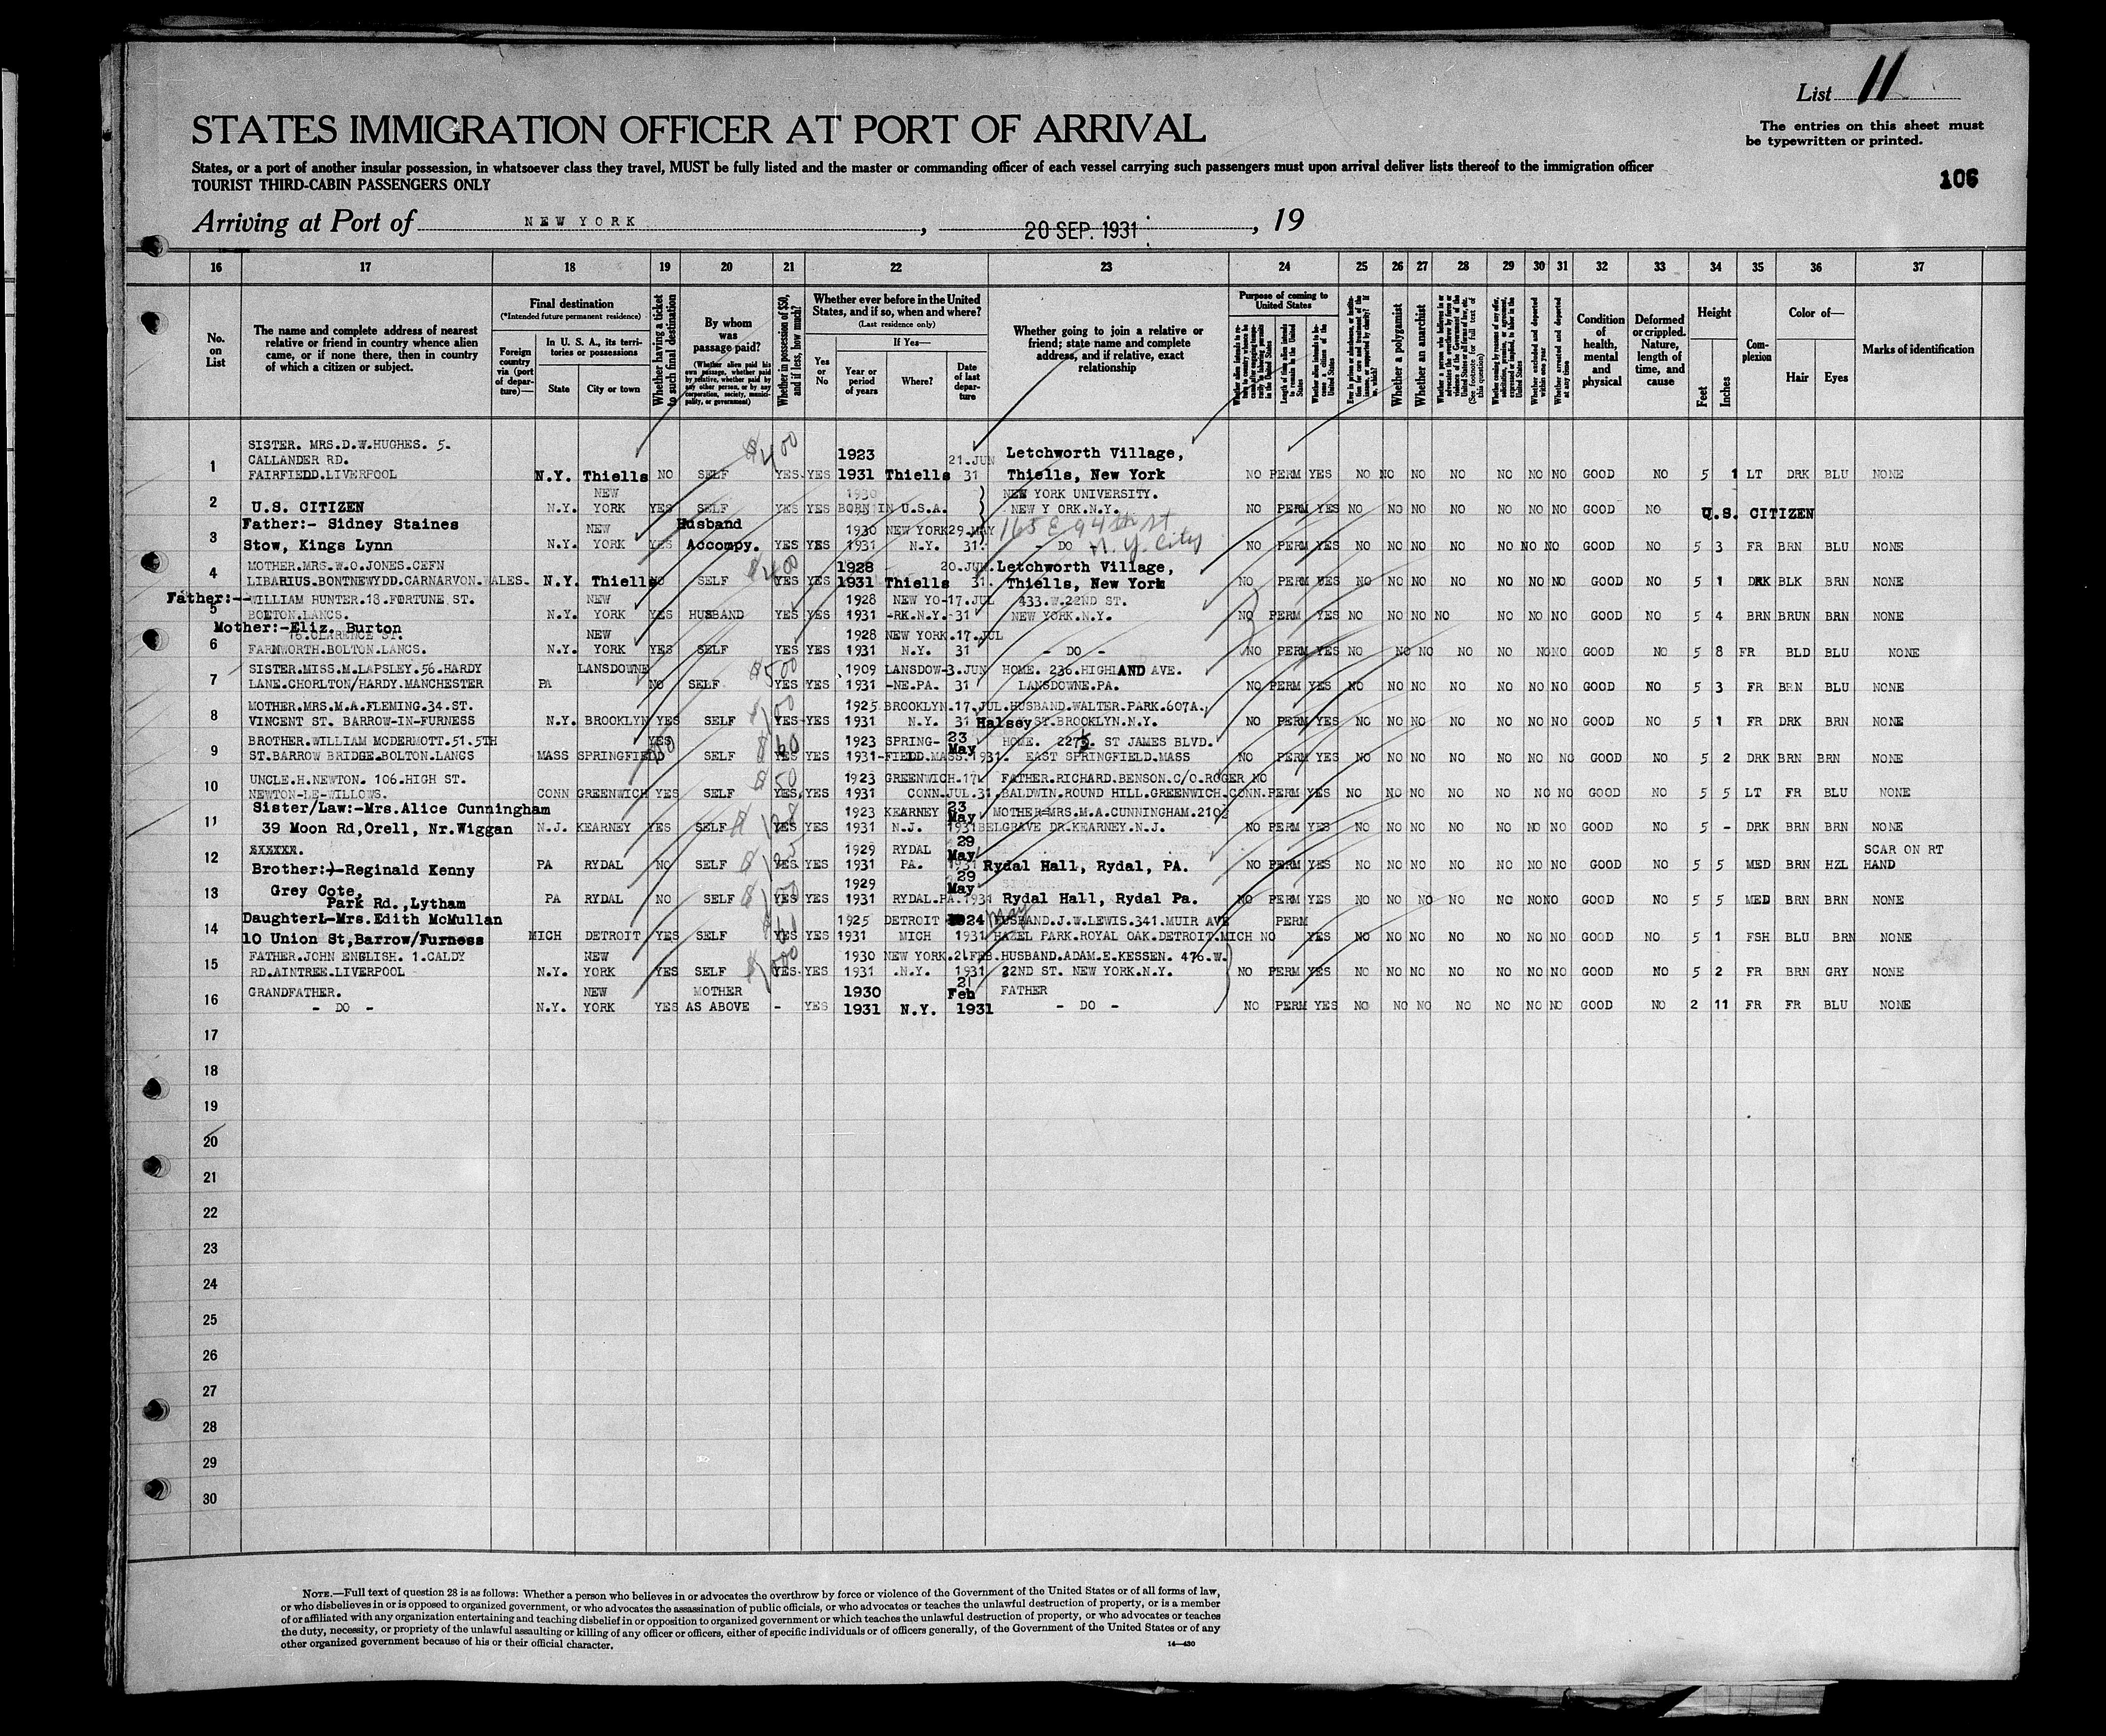 List 11
STATES IMMIGRATION OFFICER AT PORT OF ARRIVAL
The entries on this sheet must
be typewritten or printed.
States, or a port of another insular possession, in whatsoever class they travel, MUST be fully listed and the master or commanding officer of each vessel carrying such passengers must upon arrival deliver lists thereof to the immigration officer
TOURIST THIRD-CABIN PASSENGERS ONLY
106
Arriving at Port of NEW YORK, 20 SEP. 1931, 19
16 17 18 19 20 21 22 23 24 25 26 27 28 29 30 31 32 33 34 35 36 37
No. on List
The name and complete address of nearest relative or friend in country whence alien came, or if none there, then in country of which a citizen or subject.
Final destination
(*Intended future permanent residence)
Foreign country via (port of departure)—
In U. S. A., its territories or possessions
State
City or town
Whether having a ticket to such final destination
By whom was passage paid?
(Whether alien paid his own passage, whether paid by relative, whether paid by any other person, or by any corporation, society, municipality, or government)
Whether in possession of $50, and if less, how much?
Whether ever before in the United States, and if so, when and where?
(Last residence only)
Yes or No
If Yes—
Year or period of years
Where?
Date of last departure
Whether going to join a relative or friend; state name and complete address, and if relative, exact relationship
Purpose of coming to United States
Length of time alien intends to remain in the United States
Whether alien intends to become a citizen of the United States
Whether a polygamist
Whether an anarchist
(See footnote for full text of this question)
Whether excluded and deported within one year
Whether arrested and deported at any time
Condition of health, mental and physical
Deformed or crippled. Nature, length of time, and cause
Height
Feet
Inches
Complexion
Color of—
Hair
Eyes
Marks of identification
SISTER. MRS.D.W.HUGHES. 5. $400 1923 21.JUN Letchworth Village,
CALLANDER RD.
1 FAIRFIEDD.LIVERPOOL N.Y. Thiells NO SELF YES YES 1931 Thiells 31 Thiells, New York NO PERM YES NO NO NO NO NO NO NO GOOD NO 5 1 LT DRK BLU NONE
NEW 1930 NEW YORK UNIVERSITY.
2 U.S. CITIZEN N.Y. YORK YES SELF YES YES BORN IN U.S.A. NEW Y ORK.N.Y. NO PERM YES NO NO NO NO NO NO NO GOOD NO U.S. CITIZEN
Father:- Sidney Staines NEW Husband 1930 NEW YORK 29.MAY 165 E 94th St
3 Stow, Kings Lynn N.Y. YORK YES Accompy. YES YES 1931 N.Y. 31. - DO N.Y. City NO PERM YES NO NO NO NO NO NO NO GOOD NO 5 3 FR BRN BLU NONE
MOTHER.MRS.W.O.JONES.CEFN $400 1928 20.JUN. Letchworth Village,
4 LIBARIUS.BONTNEWYDD.CARNARVON.WALES. N.Y. Thiells NO SELF YES YES 1931 Thiells 31. Thiells, New York NO PERM YES NO NO NO NO NO NO NO GOOD NO 5 1 DRK BLK BRN NONE
Father:-- WILLIAM HUNTER.18.FORTUNE ST. NEW 1928 NEW YO- 17.JUL 433.W.22ND ST.
5 BOLTON.LANCS. N.Y. YORK YES HUSBAND YES YES 1931 -RK.N.Y. 31 NEW YORK.N.Y. NO PERM YES NO NO NO NO NO NO NO GOOD NO 5 4 BRN BRUN BRN NONE
Mother:-Eliz. Burton
16.CLARENCE ST. NEW 1928 NEW YORK.17.JUL
6 FARNWORTH.BOLTON.LANCS. N.Y. YORK YES SELF YES YES 1931 N.Y. 31 - DO - NO PERM YES NO NO NO NO NO NO NO GOOD NO 5 8 FR BLD BLU NONE
SISTER.MISS.M.LAPSLEY.56.HARDY LANSDOWNE $500 1909 LANSDOW- 3.JUN HOME. 236.HIGHLAND AVE.
7 LANE.CHORLTON/HARDY.MANCHESTER PA NO SELF YES YES 1931 -NE.PA. 31 LANSDOWNE.PA. NO PERM YES NO NO NO NO NO NO NO GOOD NO 5 3 FR BRN BLU NONE
MOTHER.MRS.M.A.FLEMING.34.ST. $100 1925 BROOKLYN.17.JUL.HUSBAND.WALTER.PARK.607A.
8 VINCENT ST. BARROW-IN-FURNESS N.Y. BROOKLYN YES SELF YES YES 1931 N.Y. 31 Halsey ST.BROOKLYN.N.Y. NO PERM YES NO NO NO NO NO NO NO GOOD NO 5 1 FR DRK BRN NONE
BROTHER.WILLIAM MCDERMOTT.51.5TH YES $60 1923 SPRING- 23 May HOME. 227½. ST JAMES BLVD.
9 ST.BARROW BRIDGE.BOLTON.LANCS MASS SPRINGFIEDD SELF YES YES 1931 -FIEDD.MASS. 1931. EAST SPRINGFIELD.MASS NO PERM YES NO NO NO NO NO NO NO GOOD NO 5 2 DRK BRN BRN NONE
UNCLE.H.NEWTON. 106.HIGH ST. $50 1923 GREENWICH.17. FATHER.RICHARD.BENSON.C/O.ROGER NO
10 NEWTON-LE-WILLOWS. CONN GREENWICH YES SELF YES YES 1931 CONN.JUL.31. BALDWIN.ROUND HILL.GREENWICH.CONN. PERM YES NO NO NO NO NO NO NO GOOD NO 5 5 LT FR BLU NONE
Sister/Law:-Mrs.Alice Cunningham 1923 KEARNEY 23 May MOTHER=MRS.M.A.CUNNINGHAM.210½
11 39 Moon Rd,Orell, Nr.Wiggan N.J. KEARNEY YES SELF $128 YES YES 1931 N.J. 1931 BELGRAVE DR.KEARNEY.N.J. NO PERM YES NO NO NO NO NO NO NO GOOD NO 5 - DRK BRN BRN NONE
1929 RYDAL 29 May SCAR ON RT
12 Brother:)-Reginald Kenny PA RYDAL NO SELF YES YES 1931 PA. 1931 Rydal Hall, Rydal, PA. NO PERM YES NO NO NO NO NO NO NO GOOD NO 5 5 MED BRN HZL HAND
Grey Cote, $100 1929 29 May
13 Park Rd.,Lytham PA RYDAL NO SELF YES YES 1931 RYDAL.PA. 1931 Rydal Hall, Rydal Pa. NO PERM YES NO NO NO NO NO NO NO GOOD NO 5 5 MED BRN BRN NONE
DaughterL-Mrs.Edith McMullan 1925 DETROIT 24 May HUSBAND.J.W.LEWIS.341.MUIR AVE PERM
14 10 Union St,Barrow/Furness MICH DETROIT YES SELF YES YES 1931 MICH 1931 HAZEL PARK.ROYAL OAK.DETROIT.MICH NO YES NO NO NO NO NO NO NO GOOD NO 5 1 FSH BLU BRN NONE
FATHER.JOHN ENGLISH. 1.CALDY NEW $1000 1930 NEW YORK.21.FEB.HUSBAND.ADAM.E.KESSEN. 476.W.
15 RD.AINTREE.LIVERPOOL N.Y. YORK YES SELF YES YES 1931 .N.Y. 1931 22ND ST. NEW YORK.N.Y. NO PERM YES NO NO NO NO NO NO NO GOOD NO 5 2 FR BRN GRY NONE
GRANDFATHER. NEW MOTHER 1930 21 Feb FATHER
16 - DO - N.Y. YORK YES AS ABOVE - YES 1931 N.Y. 1931 - DO - NO PERM YES NO NO NO NO NO NO NO GOOD NO 2 11 FR FR BLU NONE
17
18
19
20
21
22
23
24
25
26
27
28
29
30
NOTE.—Full text of question 28 is as follows: Whether a person who believes in or advocates the overthrow by force or violence of the Government of the United States or of all forms of law,
or who disbelieves in or is opposed to organized government, or who advocates the assassination of public officials, or who advocates or teaches the unlawful destruction of property, or is a member
of or affiliated with any organization entertaining and teaching disbelief in or opposition to organized government or which teaches the unlawful destruction of property, or who advocates or teaches
the duty, necessity, or propriety of the unlawful assaulting or killing of any officer or officers, either of specific individuals or of officers generally, of the Government of the United States or of any
other organized government because of his or their official character.
14—430